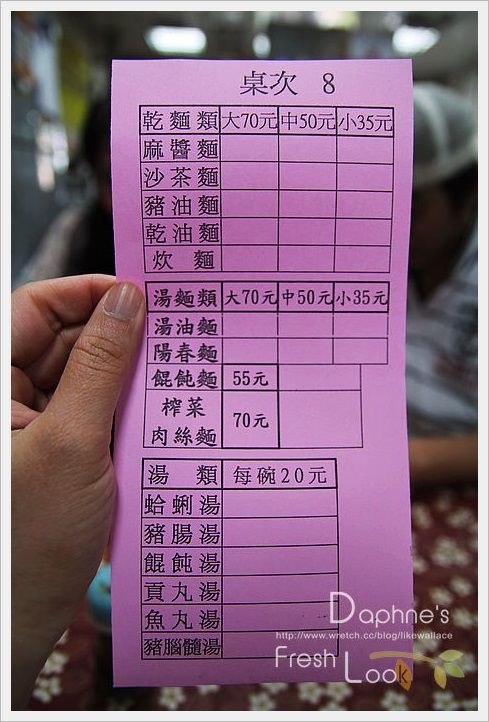 桌次 8
乾麵類 大70元 中50元 小35元
麻醬麵
沙茶麵
豬油麵
乾油麵
炊麵
湯麵類 大70元 中50元 小35元
湯油麵
陽春麵
餛飩麵 55元
榨菜
肉絲麵 70元
湯類 每碗20元
蛤蜊湯
豬腸湯
餛飩湯
貢丸湯
魚丸湯
豬腦髓湯
Daphne's
http://www.wretch.cc/blog/likewallace
Fresh Look